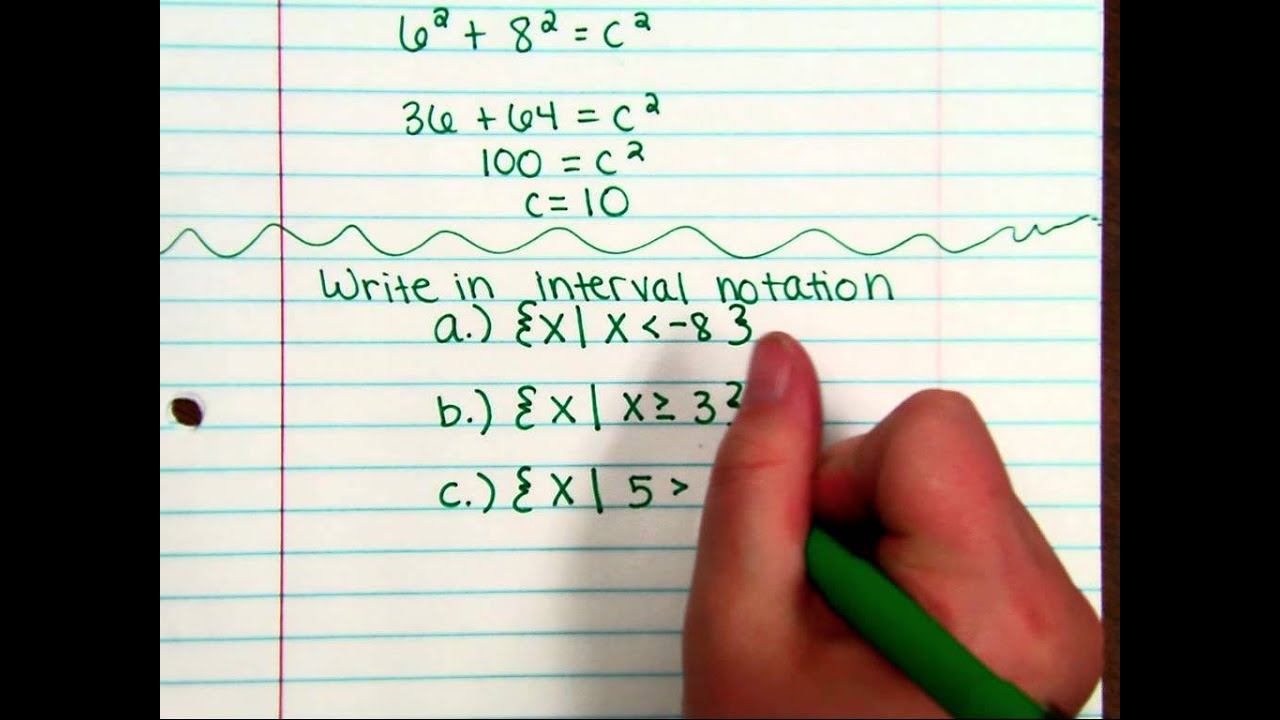 6² + 8² = c²
36 + 64 = c²
100 = c²
c = 10
Write in interval notation
a.) {x | x < -8}
b.) {x | x ≥ 3}
c.) {x | 5 >